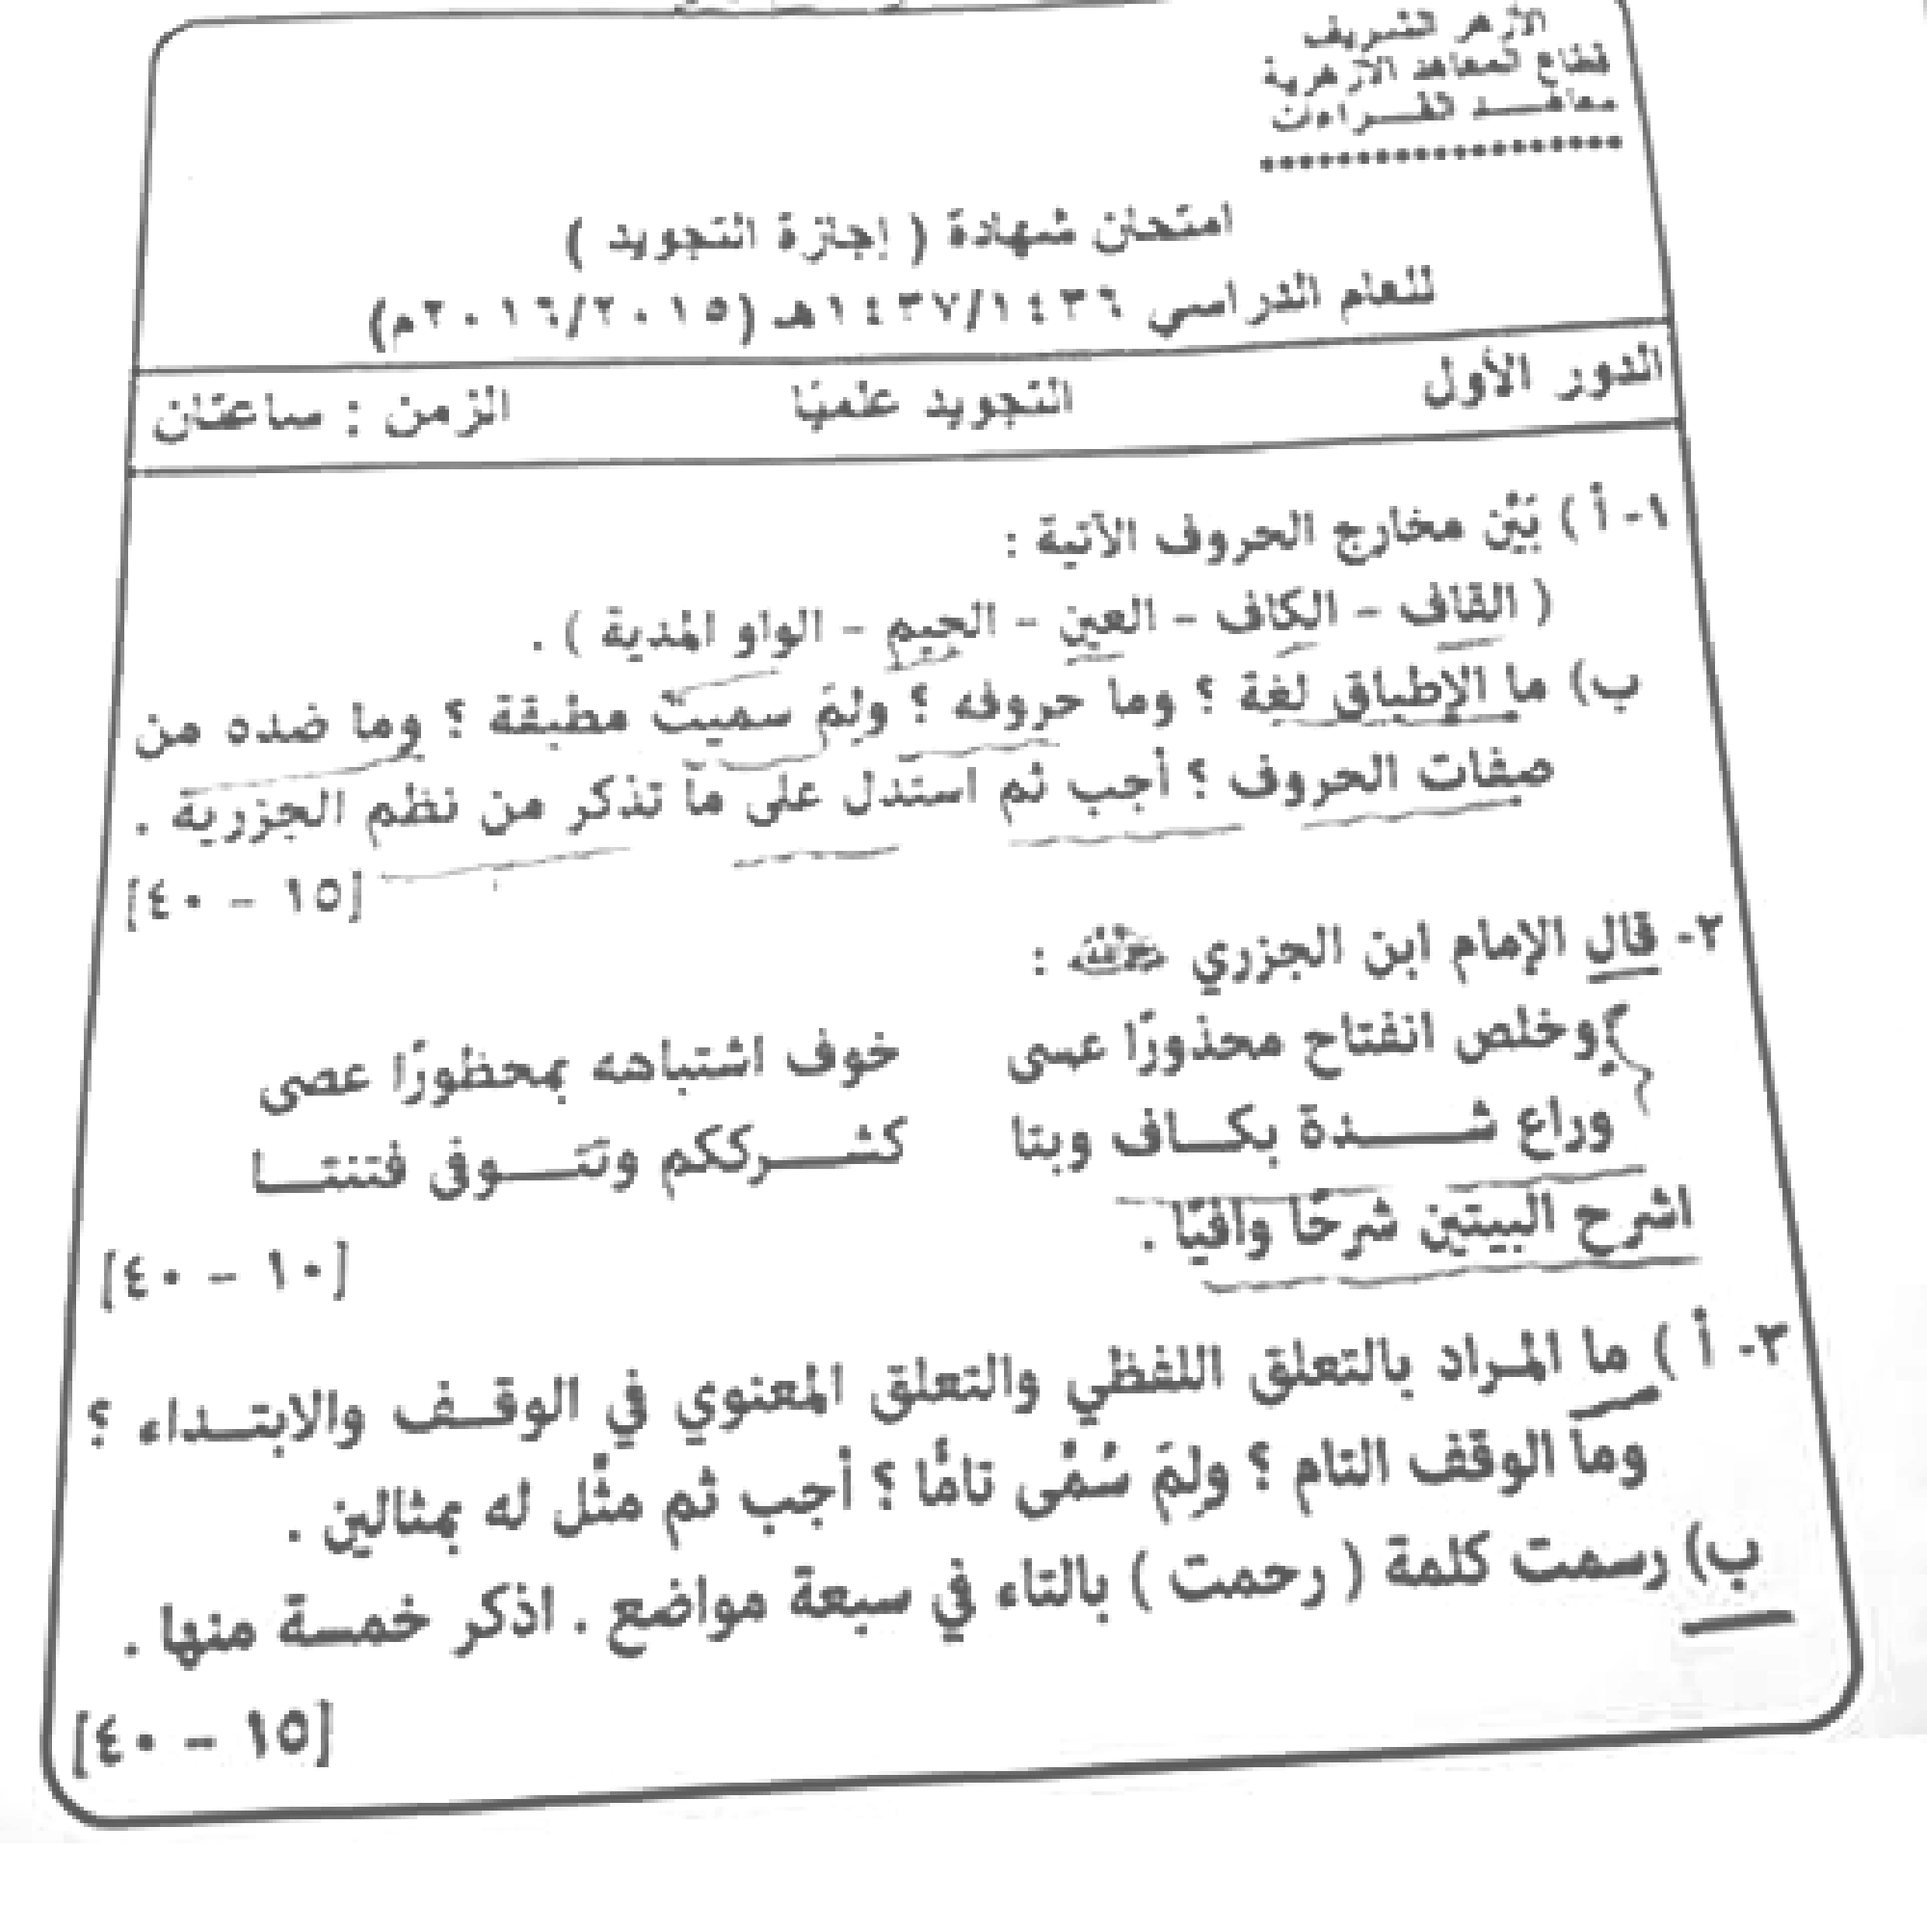 الأزهر الشريف
قطاع المعاهد الأزهرية
معاهــد القــراءات
...................
امتحان شهادة ( إجازة التجويد )
للعام الدراسي ١٤٣٧/١٤٣٦هـ (٢٠١٦/٢٠١٥م)
الدور الأول التجويد علميًا الزمن : ساعتان
١- أ ) بَيِّن مخارج الحروف الآتية :
( القاف - الكاف - العين - الجيم - الواو المدية ) .
ب) ما الإطباق لغة ؟ وما حروفه ؟ ولِمَ سميت مطبقة ؟ وما ضده من
صفات الحروف ؟ أجب ثم استدل على ما تذكر من نظم الجزرية .
[١٥ – ٤٠]
٢- قال الإمام ابن الجزري رحمه الله :
وخلص انفتاح محذورًا عسى خوف اشتباهه بمحظورًا عصى
وراع شــــدة بكــاف وبتا كشــرككم وتتــوفى فتنتــا
اشرح البيتين شرحًا وافيًا .
[١٠ – ٤٠]
٣- أ ) ما المراد بالتعلق اللفظي والتعلق المعنوي في الوقــف والابتــداء ؟
وما الوقف التام ؟ ولِمَ سُمِّى تامًّا ؟ أجب ثم مثِّل له بمثالين .
ب) رسمت كلمة ( رحمت ) بالتاء في سبعة مواضع . اذكر خمسة منها .
[١٥ – ٤٠]